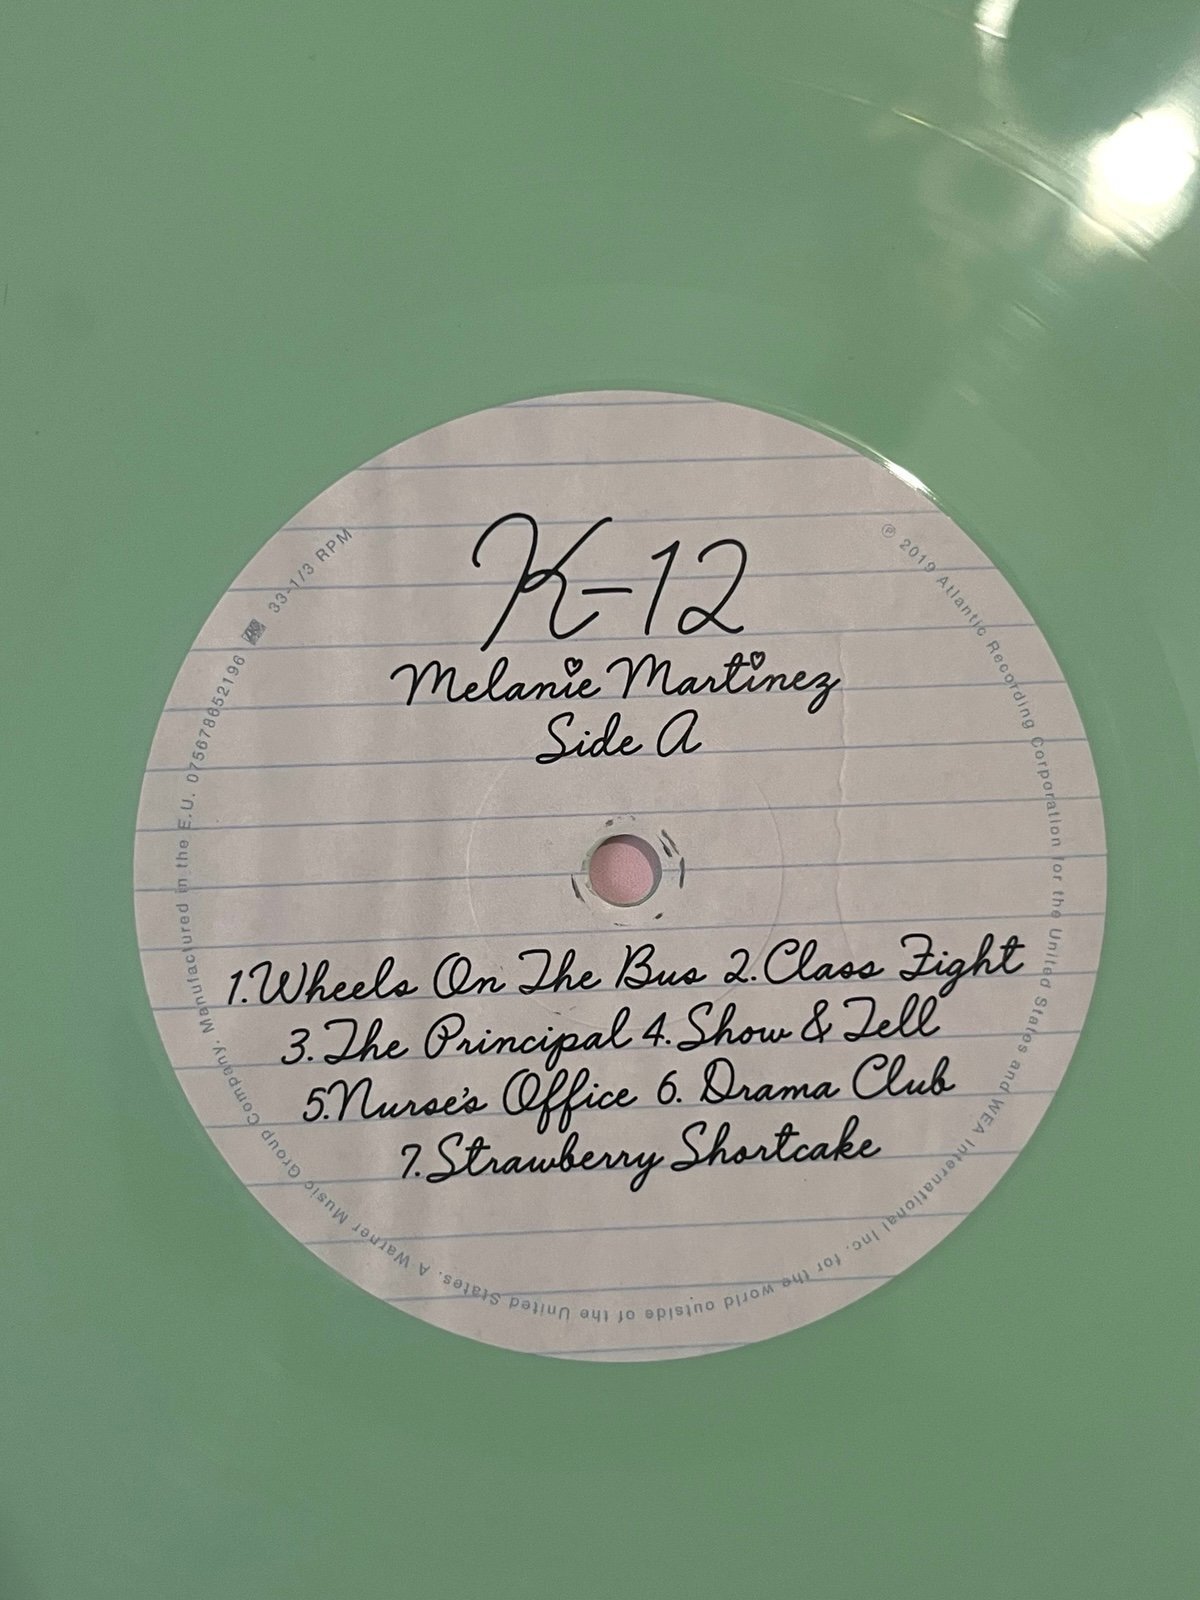 K-12
Melanie Martinez
Side A
1.Wheels On The Bus 2.Class Fight
3.The Principal 4.Show & Tell
5.Nurse's Office 6. Drama Club
7.Strawberry Shortcake
℗ 2019 Atlantic Recording Corporation for the United States and WEA International Inc. for the world outside of the United States. A Warner Music Group Company. Manufactured in the E.U. 075678652196
33-1/3 RPM